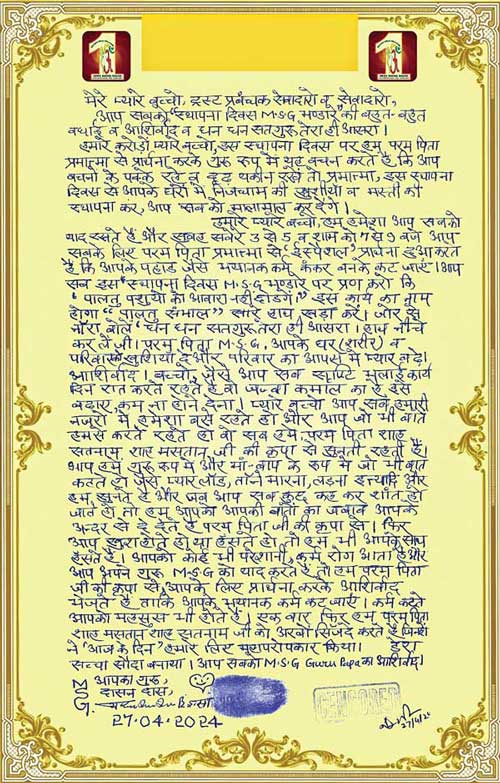 मेरे प्यारे बच्चो, ट्रस्ट प्रबंधक सेवादारो व सेवादारो,
आप सबको "स्थापना दिवस M.S.G भण्डारे" की बहुत-बहुत
बधाई व आशिर्वाद व धन धन सतगुरू तेरा ही आसरा।
हमारे करोड़ों प्यारे बच्चो, इस स्थापना दिवस पर हम, परम पिता
परमात्मा से प्रार्थना करके गुरू रूप में यह वचन करते है, कि आप
वचनों के पक्के रहें व दृढ़ यकीन रखें तो, परमात्मा, इस स्थापना
दिवस से आपके घरों में, निजधाम की खुशीयां व मस्ती की
स्थापना कर, आप सब को मालामाल कर देंगे।
हमारे प्यारे बच्चो, हम हमेशा आप सबको
याद रखते है और सुबह सवेरे 3 से 5 व शाम को 7 से 9 बजे आप
सबके लिए परम पिता परमात्मा से 'इस्पेशल' प्रार्थना
है कि आपके पहाड़ जैसे भयानक कर्म, कंकर बनके कट जाएं। आप
सब इस "स्थापना दिवस M.S.G भण्डारे पर प्रण करो कि
"पालतू पशुओं को आवारा नहीं छोड़ेंगे"। इस कार्य का नाम
होगा "पालतू संभाल" सारे हाथ खड़ा करें। जोर से
नारा बोलें 'धन धन सतगुरू तेरा ही आसरा'। हाथ नीचे
कर लें जी। परम पिता M.S.G, आपके घर (शरीर) व
परिवार को खुशियां दें और परिवार का आपस में प्यार बढ़े।
आशिर्वाद। बच्चो, जैसे आप सब सृष्टि भलाई कार्य
दिन रात करते रहते हैं, वो जज्बा कमाल का है इसे
बढ़ाएं, कम ना होने देना। प्यारे बच्चो आप सब हमारी
नजरों में हमेशा बसे रहते हो और आप जो भी बातें
हमसे करते रहते हो वो सब हमें, परम पिता शाह
सतनाम, शाह मस्तान, जी की कृपा से सुनती रहती हैं।
आप हमें गुरू रूप में और माँ-बाप के रूप में जो भी बातें
कहते हो जैसे प्यार, लाड, ताने मारना, लड़ना इत्यादि और
हम सुनते हैं और जब आप सब कुछ कह कर शांत हो
जाते हो तो हम आपको आपकी बातों का जवाब आपके
अन्दर से दे देते हैं परम पिता जी की कृपा से। फिर
आप खुश होते हो या हंसते हो, तो हम भी आपके साथ
हंसते हैं। आपको कोई भी परेशानी, कर्म रोग आता है और
आप अपने गुरू M.S.G को याद करते हैं तो हम परम पिता
जी की कृपा से, आपके लिए प्रार्थना करके आशिर्वाद
भेजते हैं ताकि आपके भयानक कर्म कट जाएं। कर्म कटते
आपको महसूस भी होते हैं। एक बार फिर हम, परम पिता
शाह मस्तान, शाह सतनाम जी को अरबों सिजदे करते हैं जिन्होंने
ने 'आज के दिन' हमारे लिए महा परोपकार किया। डेरा
सच्चा सौदा बनाया। आप सबको M.S.G Guru Papa का आशिर्वाद।
आपका गुरू,
दासन दास,
M
S
G.
27.04.2024
CENSORED